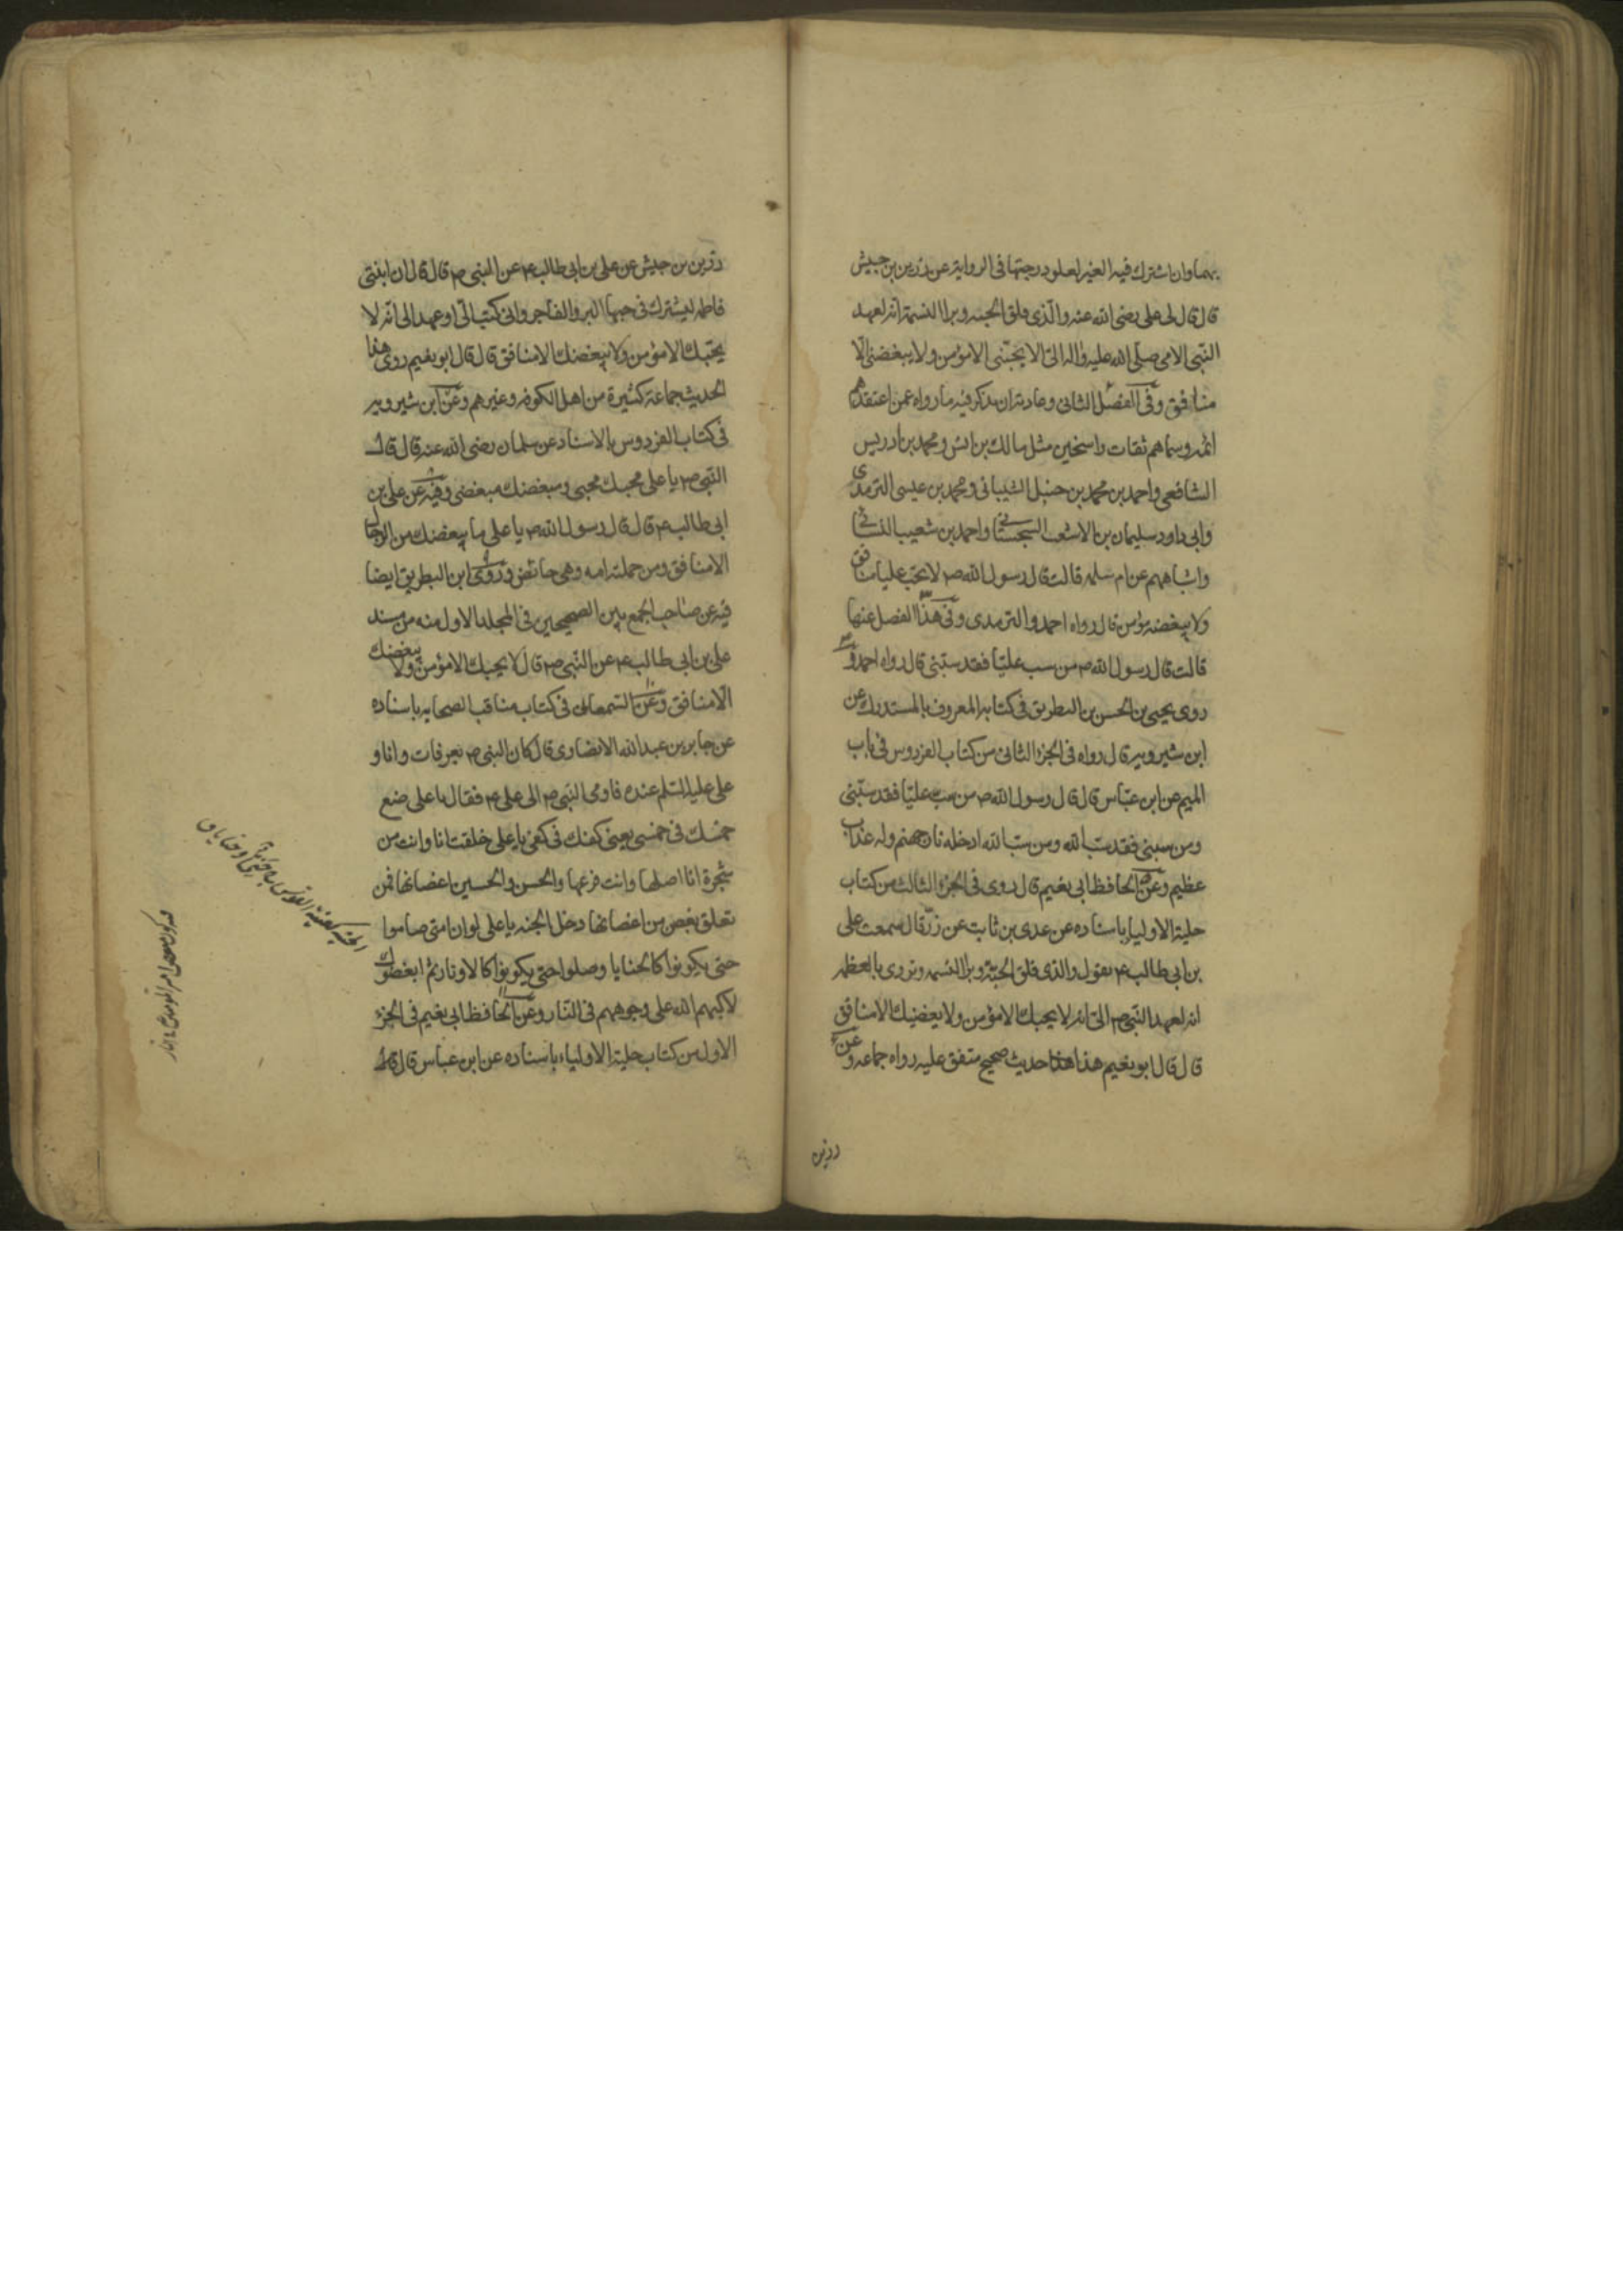 بهما وان اشترك فيه الغير لعلو درجتها فى الرواية عن زرين بن حبيش
قال قال لى على رضى الله عنه والّذى فلق الحبه وبرا النسمة انه لعهد
النّبى الامى صلّى الله عليه واله الىّ الا يحبّنى الا مؤمن ولا يبغضنى الّا
منافق وفى الفصل الثانى وعادته ان يذكر فيه ما رواه عمن اعتقدهم
ائمه وسماهم ثقات راسخين مثل مالك بن انس ومحمد بن ادريس
الشافعى واحمد بن محمد بن حنبل الشيبانى ومحمد بن عيسى الترمذى
وابى داود سليمان بن الاشعث السجستانى واحمد بن شعيب النسائى
واشباههم عن ام سلمه قالت قال رسول الله ص لا يحب عليا منافق
ولا يبغضه مؤمن قال رواه احمد والترمدى وفى هذا الفصل عنها
قالت قال رسول الله ص من سب عليّا فقد سبّنى قال رواه احمد و
روى يحيى بن الحسن بن البطريق فى كتابه المعروف بالمستدرك عن
ابن شيرويه قال رواه فى الجزء الثانى من كتاب الفردوس فى باب
الميم عن ابن عبّاس قال قال رسول الله ص من سب عليّا فقد سبّنى
ومن سبنى فقد سب الله ومن سب الله ادخله نار جهنم وله عذاب
عظيم وعن الحافظ ابى نعيم قال روى فى الجزء الثالث من كتاب
حلية الاولياء باسناده عن عدى بن ثابت عن زرّ قال سمعت على
بن ابى طالب ع يقول والذى فلق الحبّة وبرا النسمه وتردى بالعظمه
انه لعهد النّبى ص الىّ انه لا يحبك الا مؤمن ولا يبغضك الا منافق
قال قال ابو نعيم هذا هذا حديث صحيح متفق عليه رواه جماعه وعن
زرين
زرين بن حبيش عن على بن ابى طالب ع عن النبى ص قال قال ان ابنتى
فاطمه ليشترك فى حبها البر والفاجر وانى كتب الىّ او عهد الى انّه لا
يحبّك الا مؤمن ولا يبغضك الا منافق قال قال ابو نعيم روى هذا
الحديث جماعة كثيرة من اهل الكوفه وغيرهم وعن ابن شيرويه
فى كتاب الفردوس بالاسناد عن سلمان رضى الله عنه قال قال
النّبى ص يا على محبك محبى ومبغضك مبغضى وفيه عن على بن
ابى طالب ع قال قال رسول الله ص يا على ما يبغضك من الرجال
الا منافق ومن حملته امه وهى حائض وروى ابن البطريق ايضا
فيه عن صاحب الجمع بين الصحيحين فى المجلد الاول منه من مسند
على بن ابى طالب ع عن النّبى ص قال لا يحبك الا مؤمن ولا يبغضك
الّا منافق وعن السّمعانى فى كتاب مناقب الصحابه باسناده
عن جابر بن عبد الله الانصارى قال كان النبى ص بعرفات وانا و
على عليه السّلم عنده فاومى النّبى ص الى على ع فقال يا على ضع
خمسك فى خمسى يعنى كفك فى كفى يا على خلقت انا وانت من
شجرة انا اصلها وانت فرعها والحسن والحسين اغصانها فمن
تعلق بغصن من اغصانها دخل الجنه يا على لو ان امتى صاموا
حتى يكونوا كالحنايا وصلوا حتى يكونوا كالاوتار ثم ابغضوك
لاكبهم الله على وجوههم فى النّار وعن الحافظ ابى نعيم فى الجزء
الاول من كتاب حلية الاولياء باسناده عن ابن عباس قال قال